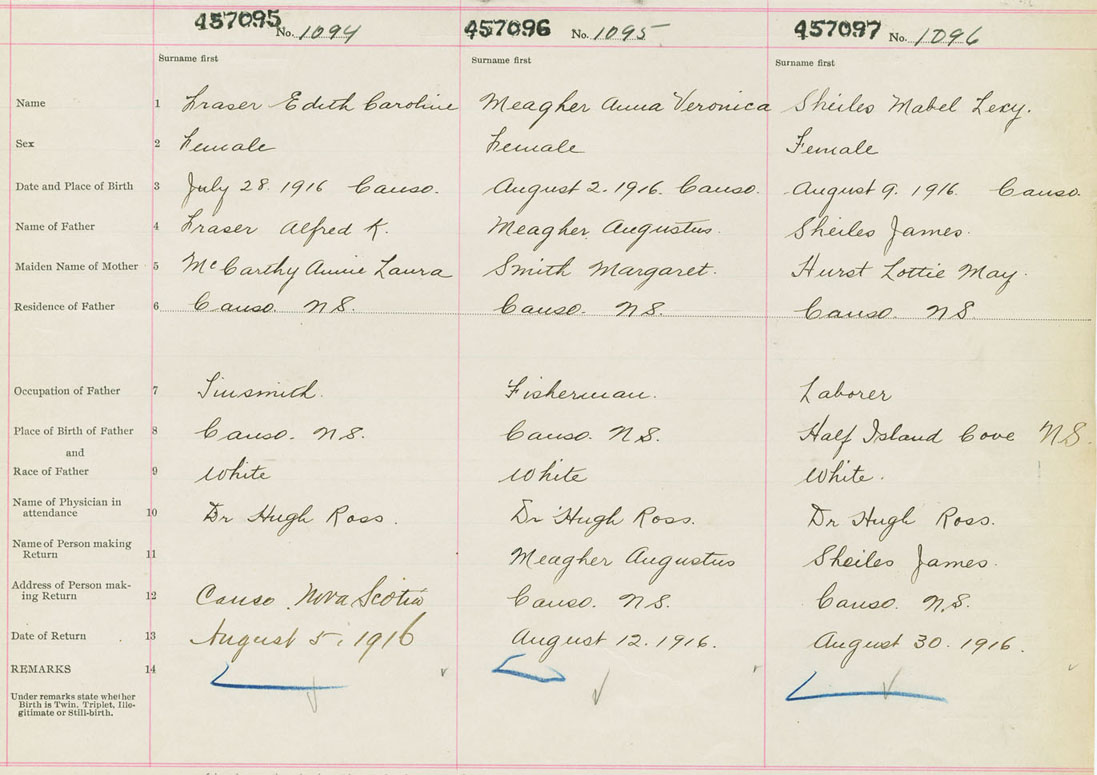 457095 No. 1094 457096 No. 1095 457097 No. 1096
Surname first Surname first Surname first
Name 1 Fraser Edith Caroline Meagher Anna Veronica Sheiles Mabel Lexy.
Sex 2 Female Female Female
Date and Place of Birth 3 July 28. 1916 Canso. August 2. 1916. Canso. August 9. 1916. Canso.
Name of Father 4 Fraser Alfred K. Meagher Augustus. Sheiles James.
Maiden Name of Mother 5 McCarthy Annie Laura Smith Margaret. Hurst Lottie May.
Residence of Father 6 Canso. N.S. Canso. N.S. Canso. N.S.
Occupation of Father 7 Tinsmith. Fisherman. Laborer
Place of Birth of Father 8 Canso. N.S. Canso. N.S. Half Island Cove N.S.
and
Race of Father 9 White White White.
Name of Physician in
attendance 10 Dr Hugh Ross. Dr Hugh Ross. Dr Hugh Ross.
Name of Person making
Return 11 Meagher Augustus Sheiles James.
Address of Person mak-
ing Return 12 Canso. Nova Scotia Canso. N.S. Canso. N.S.
Date of Return 13 August 5, 1916 August 12. 1916. August 30. 1916.
REMARKS 14
Under remarks state whether
Birth is Twin, Triplet, Ille-
gitimate or Still-birth.